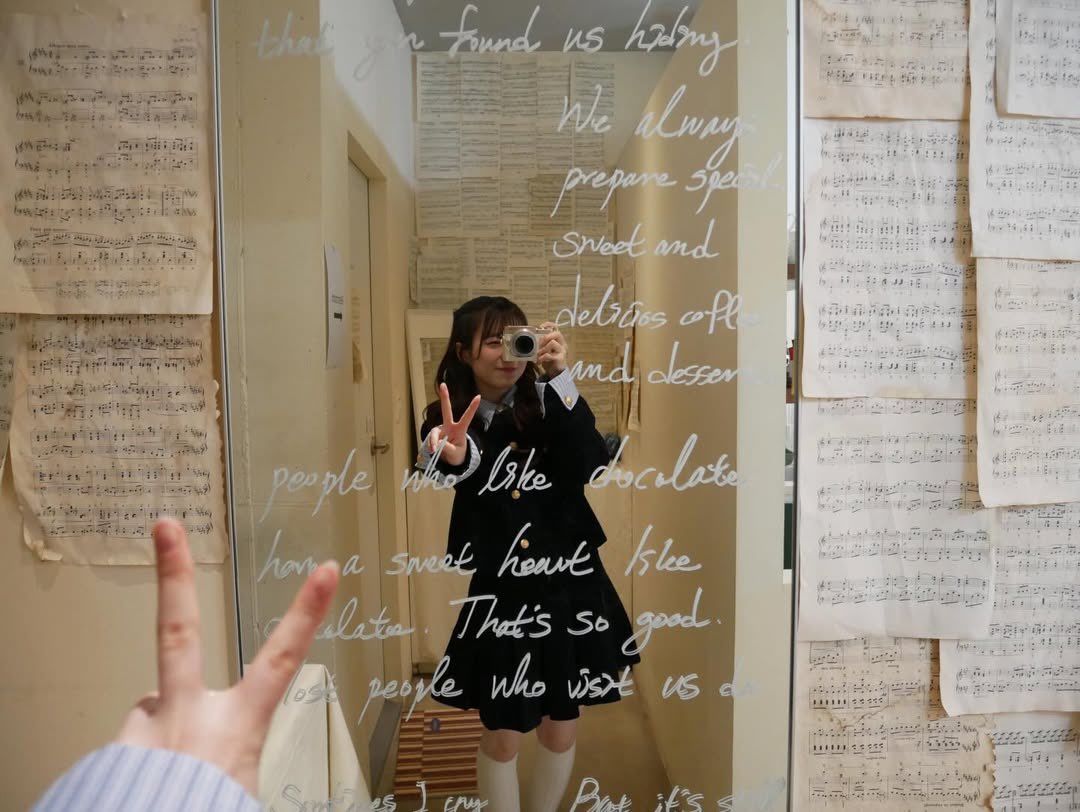 found us hiding.
We always
prepare special
sweet and
delicios coffee
and dessert
people who like chocolate
have a sweet heart like
chocolate. That's so good.
Most people who visit us
Sometimes I cry
But it's